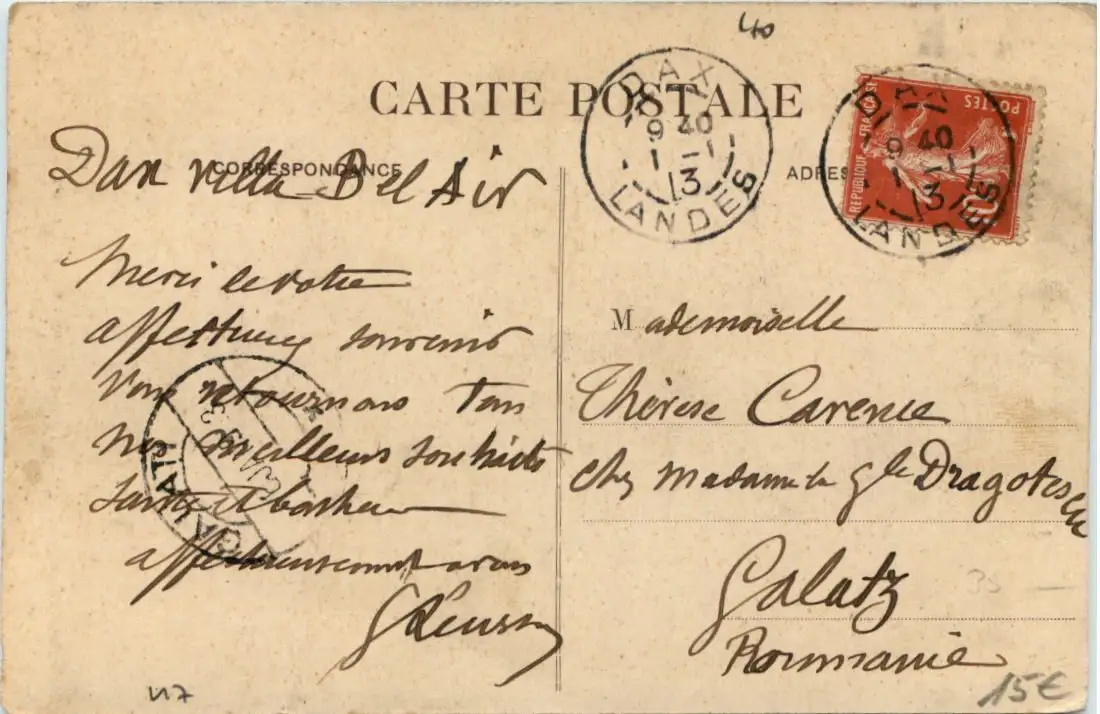 40
CARTE POSTALE
CORRESPONDANCE
ADRES
DAX
9 40
1 - 1
13
LANDES
DAX
9 40
1 - 1
13
LANDES
REPUBLIQUE FRANCAISE
POSTES
10
Dax villa Bel Air
Merci de votre
affectueux souvenir
Vous retournons tous
nos meilleurs souhaits
santé et bonheur
affectueusement à vous
GALATI
Mademoiselle
Thérèse Carence
chez Madame la Gle Dragotescu
Galatz
Roumanie
15€